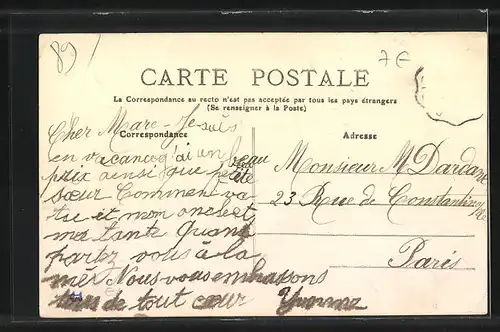 89
7 €
CARTE POSTALE
La Correspondance au recto n'est pas acceptée par tous les pays étrangers
(Se renseigner à la Poste)
Correspondance
Adresse
Cher Marc - Je suis
en vacance j'ai un beau
prix ainsi que petite
sœur Comment va
tu et mon oncle et
ma tante Quand
partez vous à la
mer Nous vous embrassons
de tout cœur Yvonne
Monsieur M Dardane
23 Rue de Constantinople
Paris